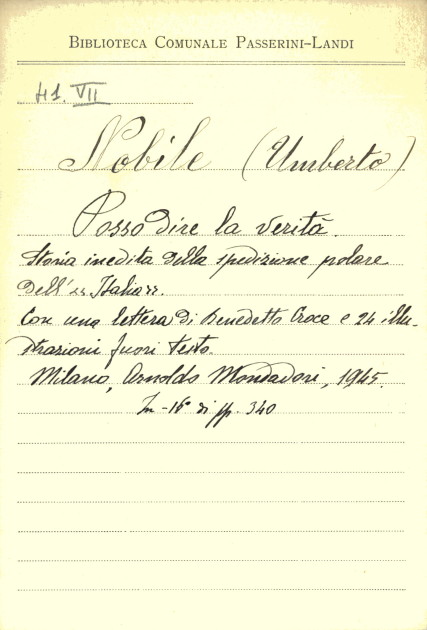 BIBLIOTECA COMUNALE PASSERINI-LANDI
41. VII
Nobile (Umberto)
Posso dire la verità.
Storia inedita della spedizione polare
dell'"Italia".
Con una lettera di Benedetto Croce e 24 illu-
strazioni fuori testo.
Milano, Arnoldo Mondadori, 1945.
In-16° di pp. 340